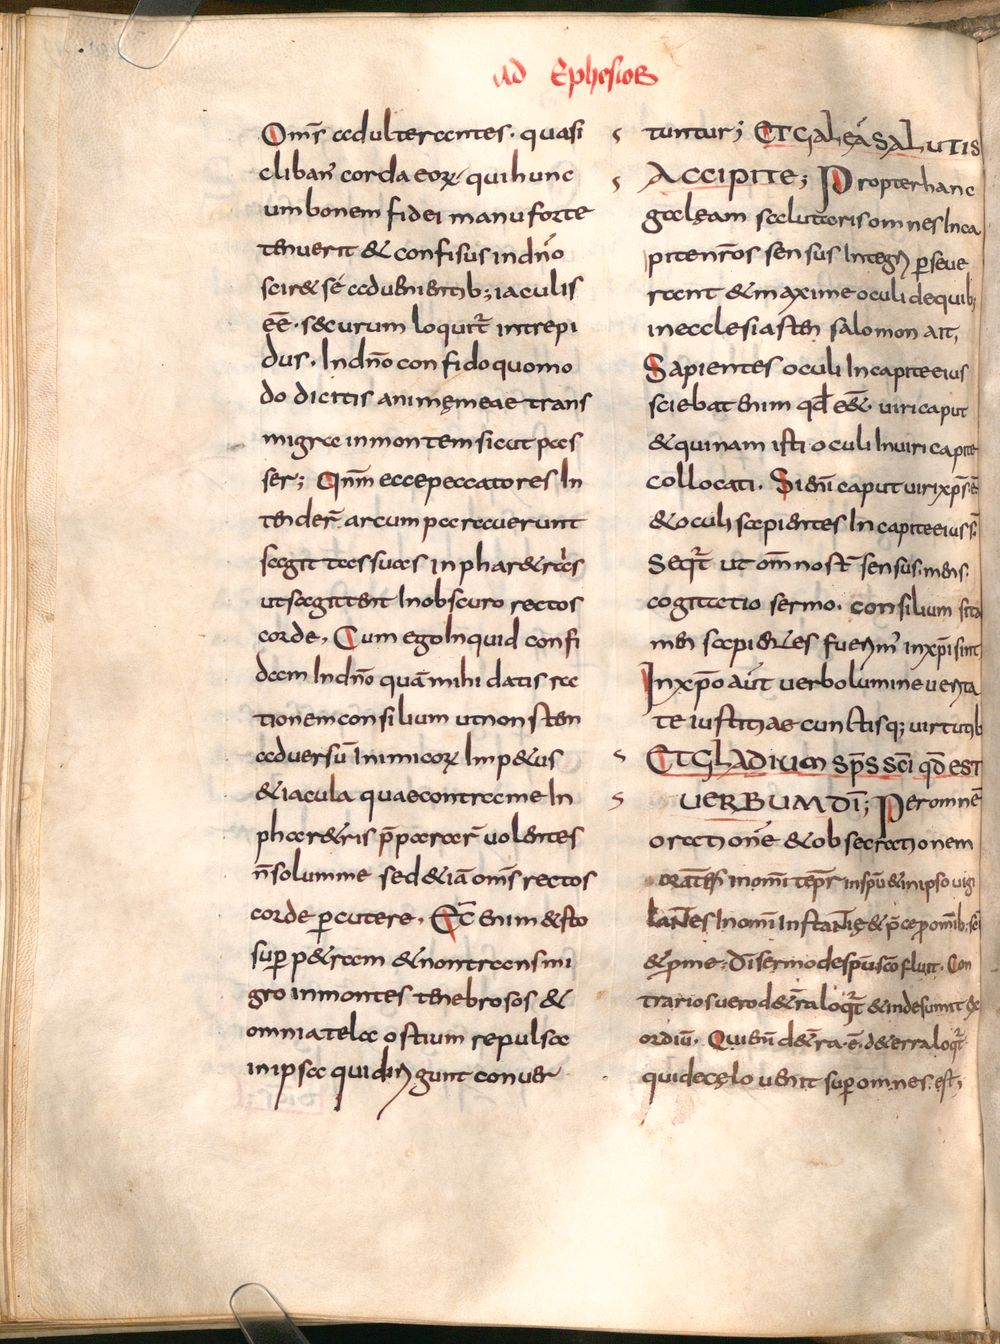 ad Ephesios
Om̅s adulterantes · quasi
cliban̅ corda eoꝝ · qui hunc
umbonem fidei manu forte
tenuerit & confisus in dn̅o
scir& se aduenientib; iaculis
ee̅ · securum loquit̅ intrepi
dus · In dn̅o confido quomo
do dicitis animę meae trans
migra in montem sicut pas
ser; Qnm̅ ecce peccatores In
tender̅ arcum parauerunt
sagittas suas in phar&ras
ut sagittent In obscuro rectos
corde, Cum ego Inquid confi
dam In dn̅o quā mihi datis ra
tionem consilium ut non sten
aduersū Inimicoꝝ Imp&us
& iacula quae contra me In
phar&ris p̅parar̅ uolentes
n̅ solum me sed & iā om̅s rectos
corde ꝑcutere, Ec̅ enim & sto
suꝑ p&ram & non transmi
gro in montes tenebrosos &
omnia tela ostium repulsa
in ipsa qui dirigunt conuer
tuntur; ET GALEĀ SALUTIS
ACCIPITE; Propter hanc
galęam salutaris omnes In ca
pite nr̅os sensus Integri ꝑseue
rant & maxime oculi de quib;
in ecclesiasten salomon ait,
Sapientes oculi In capite eius
sciebat enim qđ ess& uiri caput
& quinam isti oculi In uiri capite
collocati · Si eni̅ caput uiri xp̅s e̅
& oculi sapientes In capite eius s̅
Seqt̅ ut om̅ nost̅ sensus · mens ·
cogitatio sermo · consilium si ta
men sapientes fuerim̅ in xp̅i sint
In xp̅o aūt uerbo lumine uerita
te iustitiae cunctisq; uirtutib
ET GLADIUM SP̅S SC̅I qđ EST
UERBUM DI̅; Per omnē
orationē & obsecrationem
orantes In omi̅ tepr̅ in spū & in ipso uigi
lantes In omi̅ Instantię & p̅ce ꝓ omib; sc̅i
& ꝓ me · Di̅ sermo de spū sc̅o fluit · Con
trarios uero de t̅ra loqt̅ & inde sumit ex
ordiū · Qui eni̅ de t̅ra · ē · de terra loqt̅
qui de cęlo uenit suꝑ omnes · est;